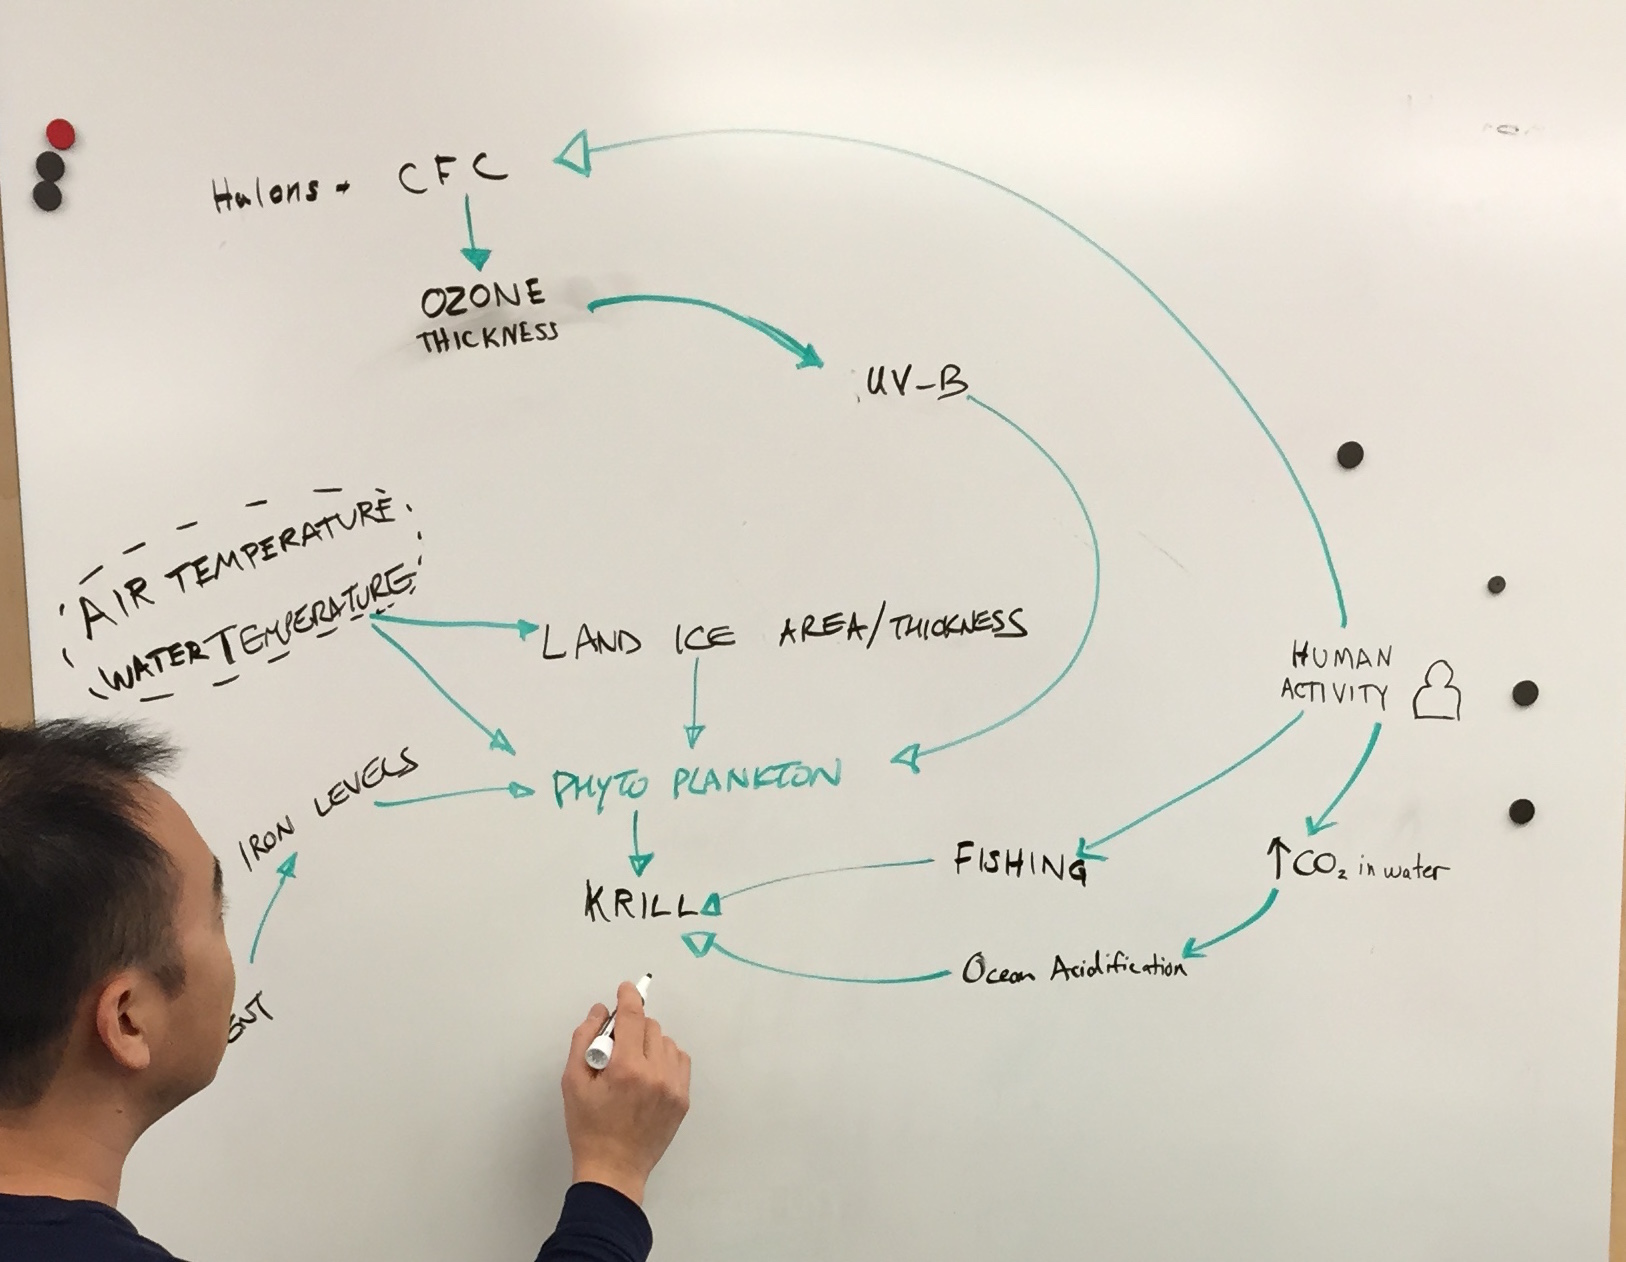 Halons → CFC
OZONE
THICKNESS
UV-B
AIR TEMPERATURE
WATER TEMPERATURE
LAND ICE AREA/THICKNESS
HUMAN
ACTIVITY
IRON LEVELS
PHYTO PLANKTON
FISHING
↑CO₂ in water
KRILL
Ocean Acidification
ENT